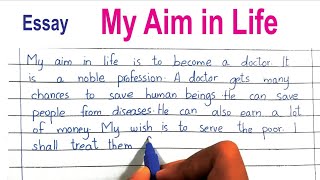 Essay My Aim in Life
My aim in life is to become a doctor. It
is a noble profession. A doctor gets many
chances to save human beings. He can save
people from diseases. He can also earn a lot
of money. My wish is to serve the poor. I
shall treat them